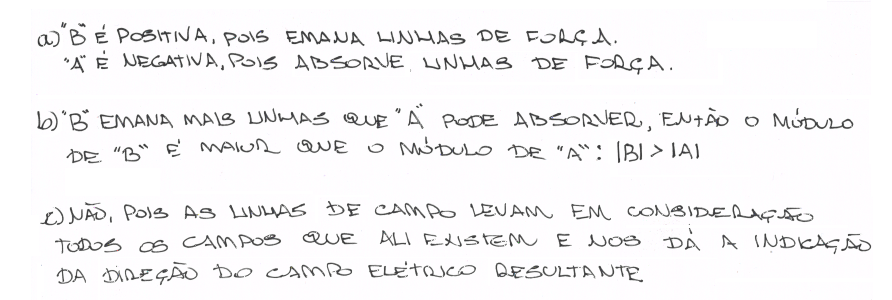 a) "B" É POSITIVA, POIS EMANA LINHAS DE FORÇA.
"A" É NEGATIVA, POIS ABSORVE LINHAS DE FORÇA.
b) "B" EMANA MAIS LINHAS QUE "A" PODE ABSORVER, ENTÃO O MÓDULO
DE "B" É MAIOR QUE O MÓDULO DE "A": |B| > |A|
c) NÃO, POIS AS LINHAS DE CAMPO LEVAM EM CONSIDERAÇÃO
TODOS OS CAMPOS QUE ALI EXISTEM E NOS DÁ A INDICAÇÃO
DA DIREÇÃO DO CAMPO ELÉTRICO RESULTANTE